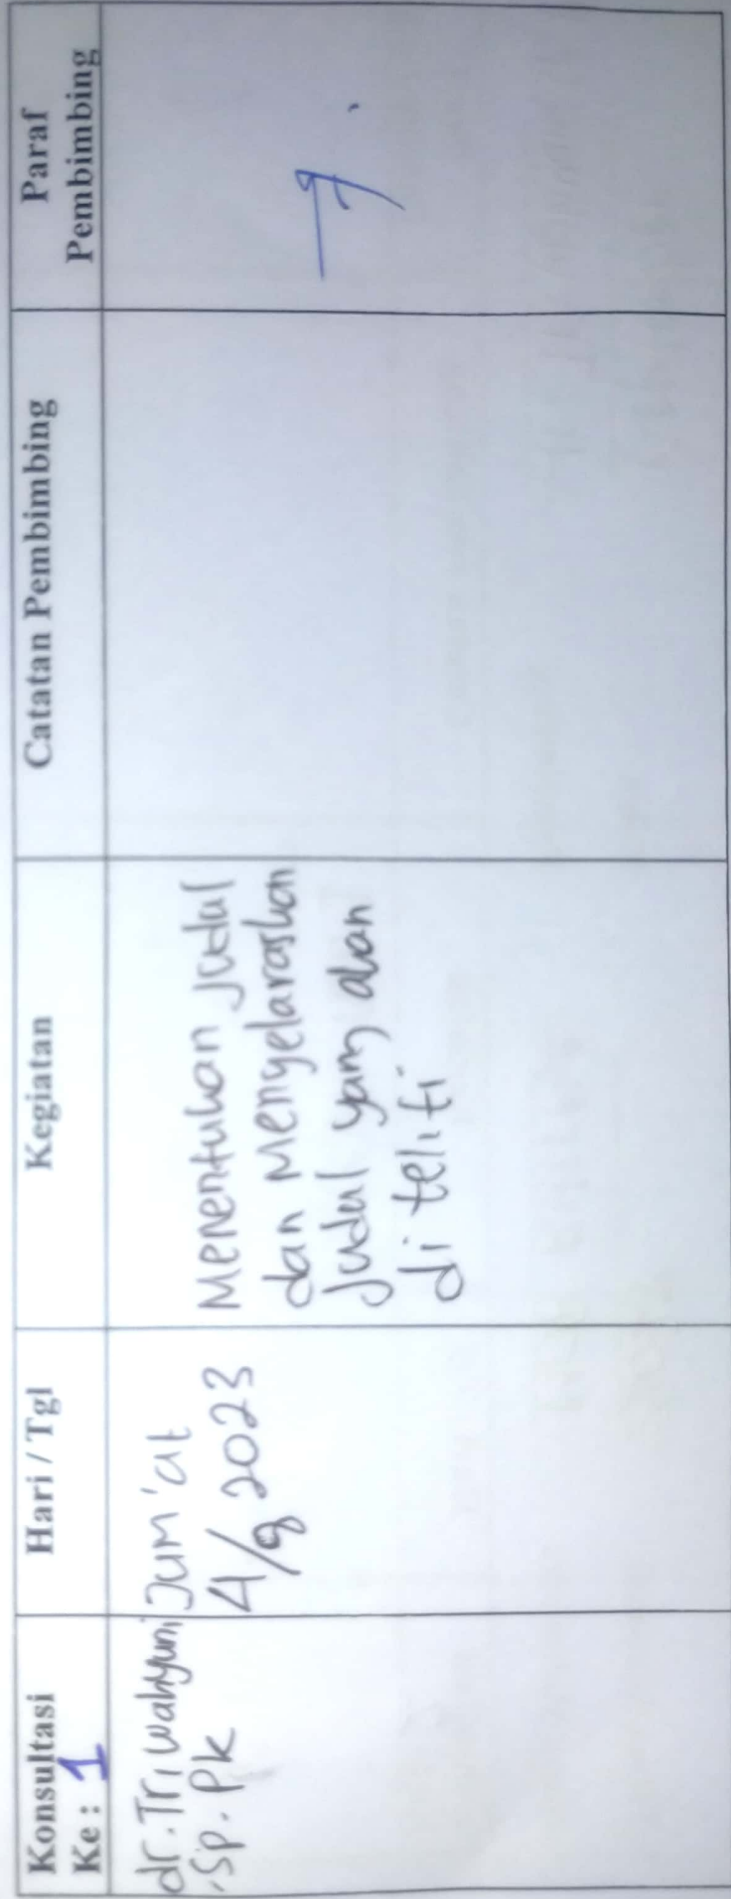 Konsultasi
Ke : 1
Hari / Tgl
Kegiatan
Catatan Pembimbing
Paraf
Pembimbing
dr. Tri wahyuni
. Sp. Pk
Jum'at
4/8 2023
Menentukan Judul
dan Menyelaraskan
Judul yang akan
di teliti